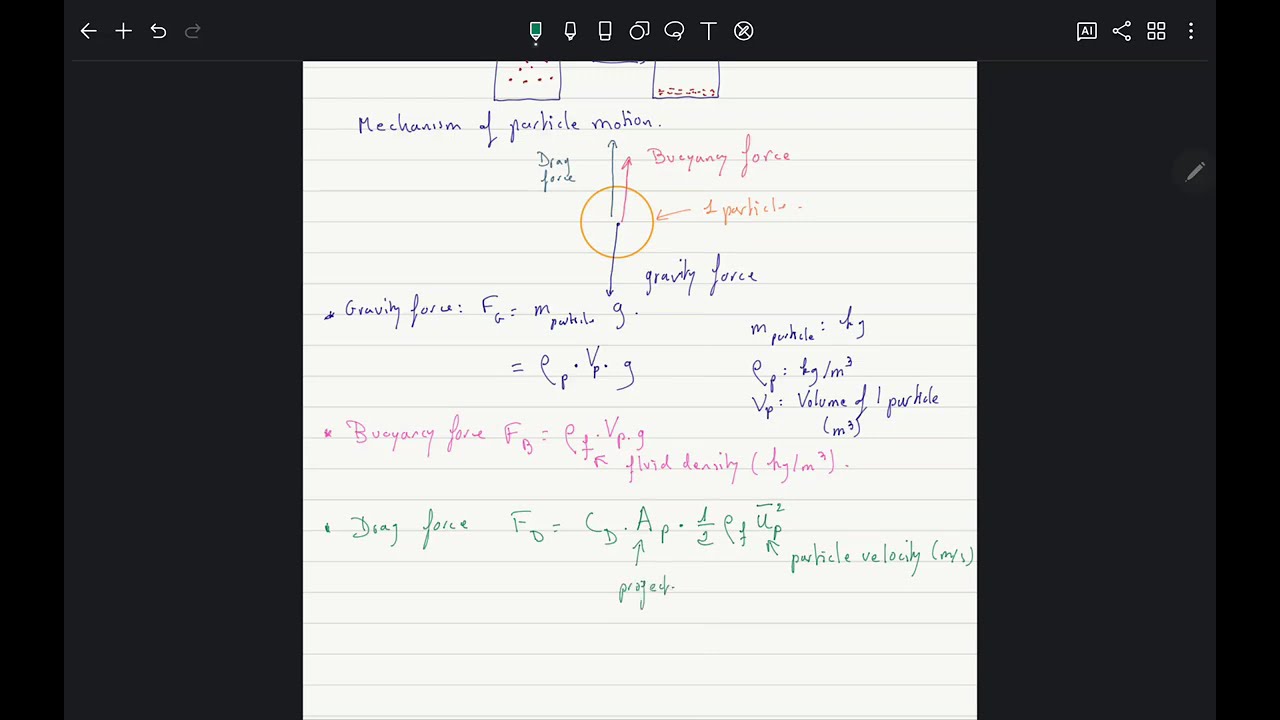 AI
T
Mechanism of particle motion.
Drag force
Buoyancy force
1 particle.
gravity force
* Gravity force: F_G = m_particle g.
m_particle : kg
= ρ_p · V_p · g
ρ_p : kg/m³
V_p : Volume of 1 particle
(m³)
* Buoyancy force F_B = ρ_f · V_p · g
fluid density (kg/m³).
* Drag force F_D = C_D · A_p · 1/2 ρ_f ū_p²
particle velocity (m/s)
project.